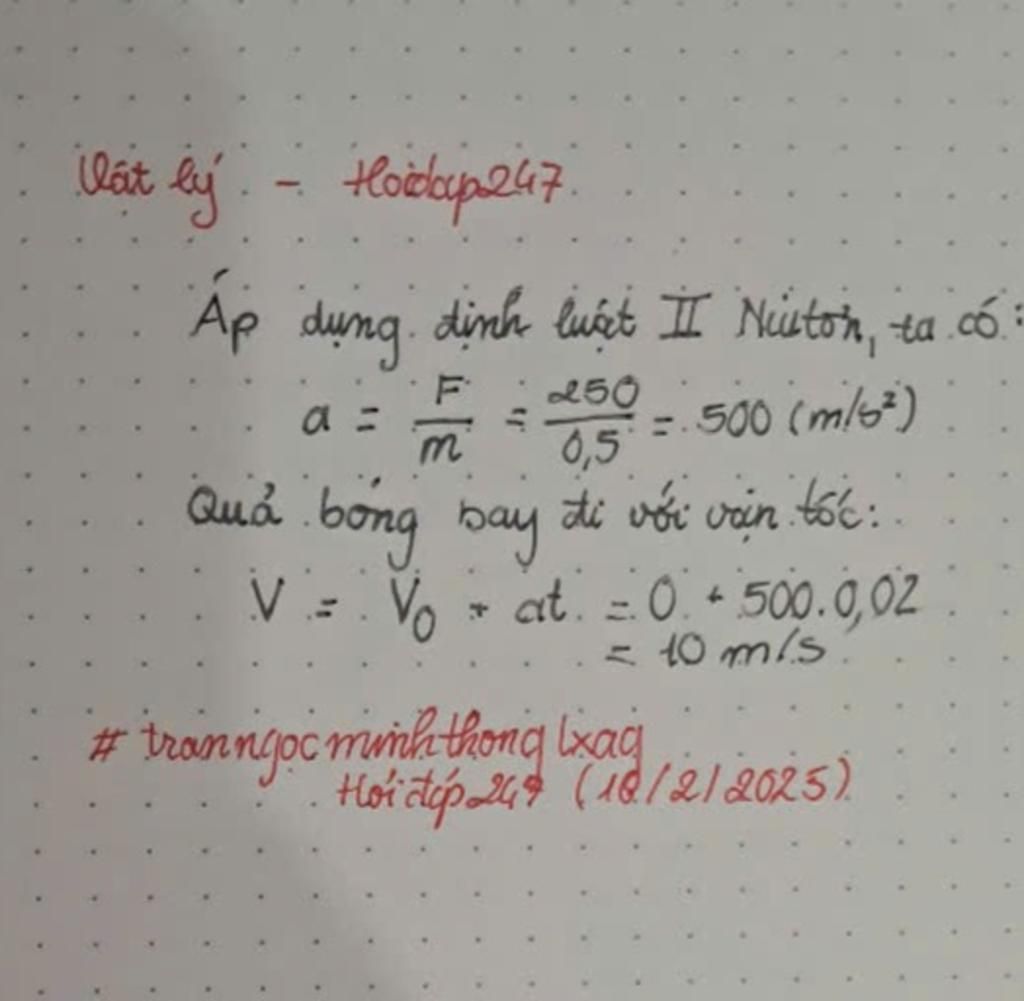 Vật lý - Hoidap247
Áp dụng định luật II Niutơn, ta có:
a = F/m = 250/0,5 = 500 (m/s²)
Quả bóng bay đi với vận tốc:
V = V₀ + at = 0 + 500.0,02
= 10 m/s
# tranngocminhthong lxag
Hỏi đáp 247 (18/2/2025)